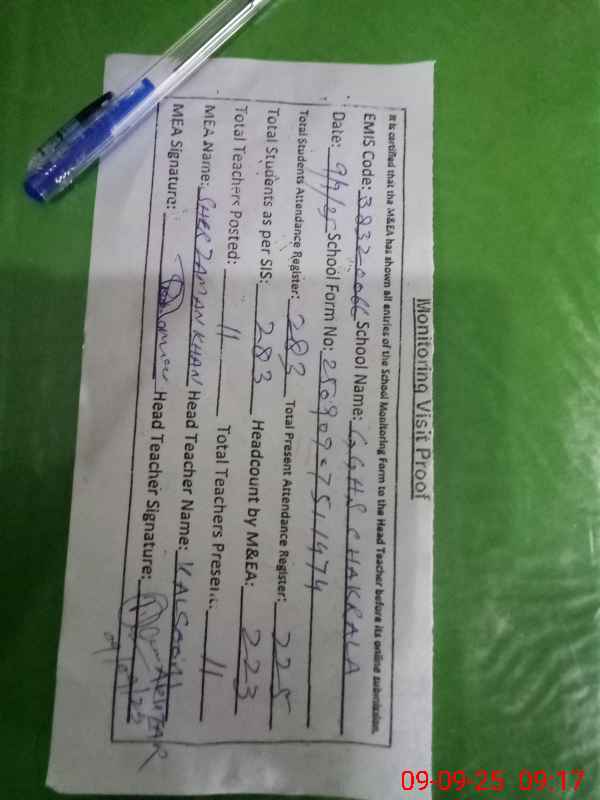 Monitoring Visit Proof
It is certified that the M&EA has shown all entries of the School Monitoring Form to the Head Teacher before its online submission.
EMIS Code: 38320066 School Name: GGHS CHAKRALA
Date: 9/9/25 School Form No: 2509090751474
Total Students Attendance Register: 283 Total Present Attendance Register: 225
Total Students as per SIS: 283 Headcount by M&EA: 223
Total Teachers Posted: 11 Total Teachers Present: 11
MEA Name: SHERZAMAN KHAN Head Teacher Name: KALSOOM AKHTAR
MEA Signature: Head Teacher Signature:
9/09/25
09-09-25 09:17